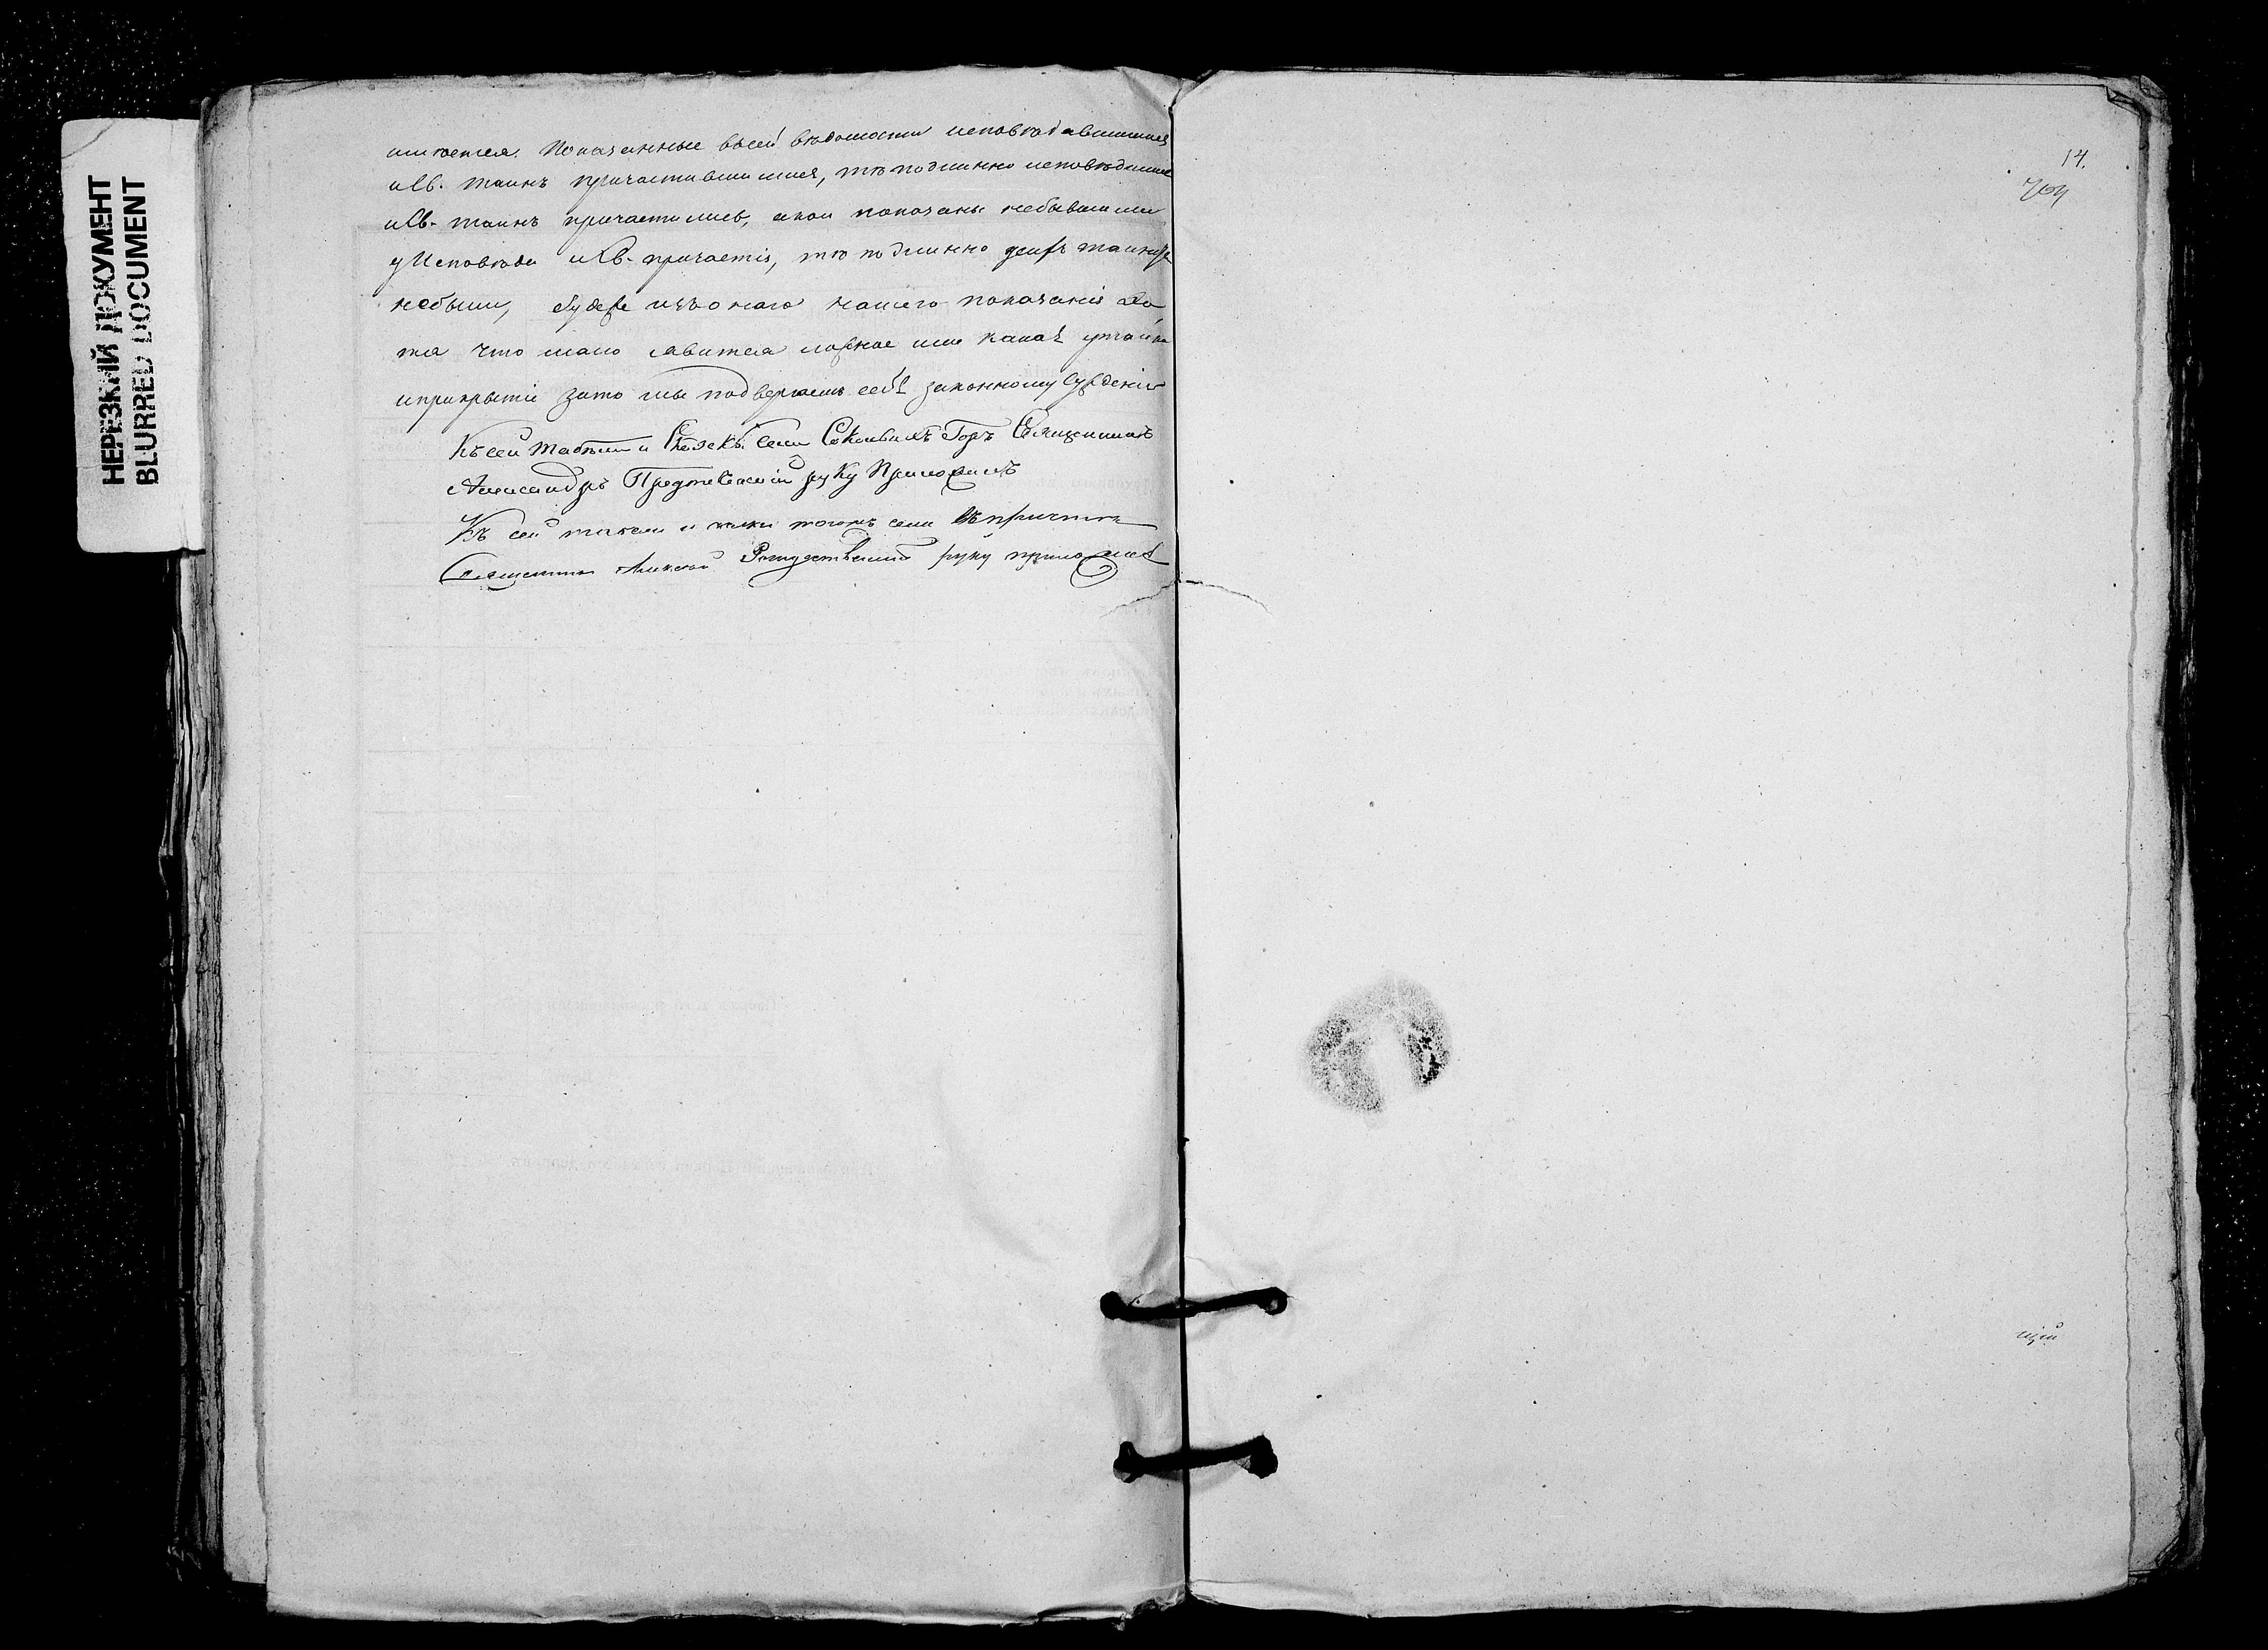 НЕРЕЗКИЙ ДОКУМЕНТ
BLURRED DOCUMENT
Показанные всей ведомости исповедавшимися
и Св. таинъ причастившимися, тѣ подлинно исповѣдались
и Св. таинъ причастились, а кои показаны небывшими
у Исповѣди и Св. причастія, тѣ подлинно у сихъ таинствъ
небыли, буде же изъ онаго нашего показанія хо
тя что мало явится ложное или какая утайка
и прикрытіе зато мы подвергаемъ себя законному сужденію
Къ сей табели села Соколъихъ Горъ Священникъ
Александръ руку приложилъ
Къ сей табели и тогожъ села
Священникъ Алексѣй Рождественскій руку приложилъ
14.
704
щій